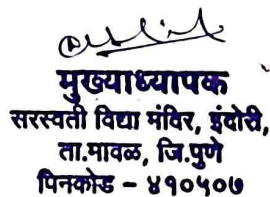 मुख्याध्यापक
सरस्वती विद्या मंदिर, इंदोरी,
ता.मावळ, जि.पुणे
पिनकोड - ४१०५०७